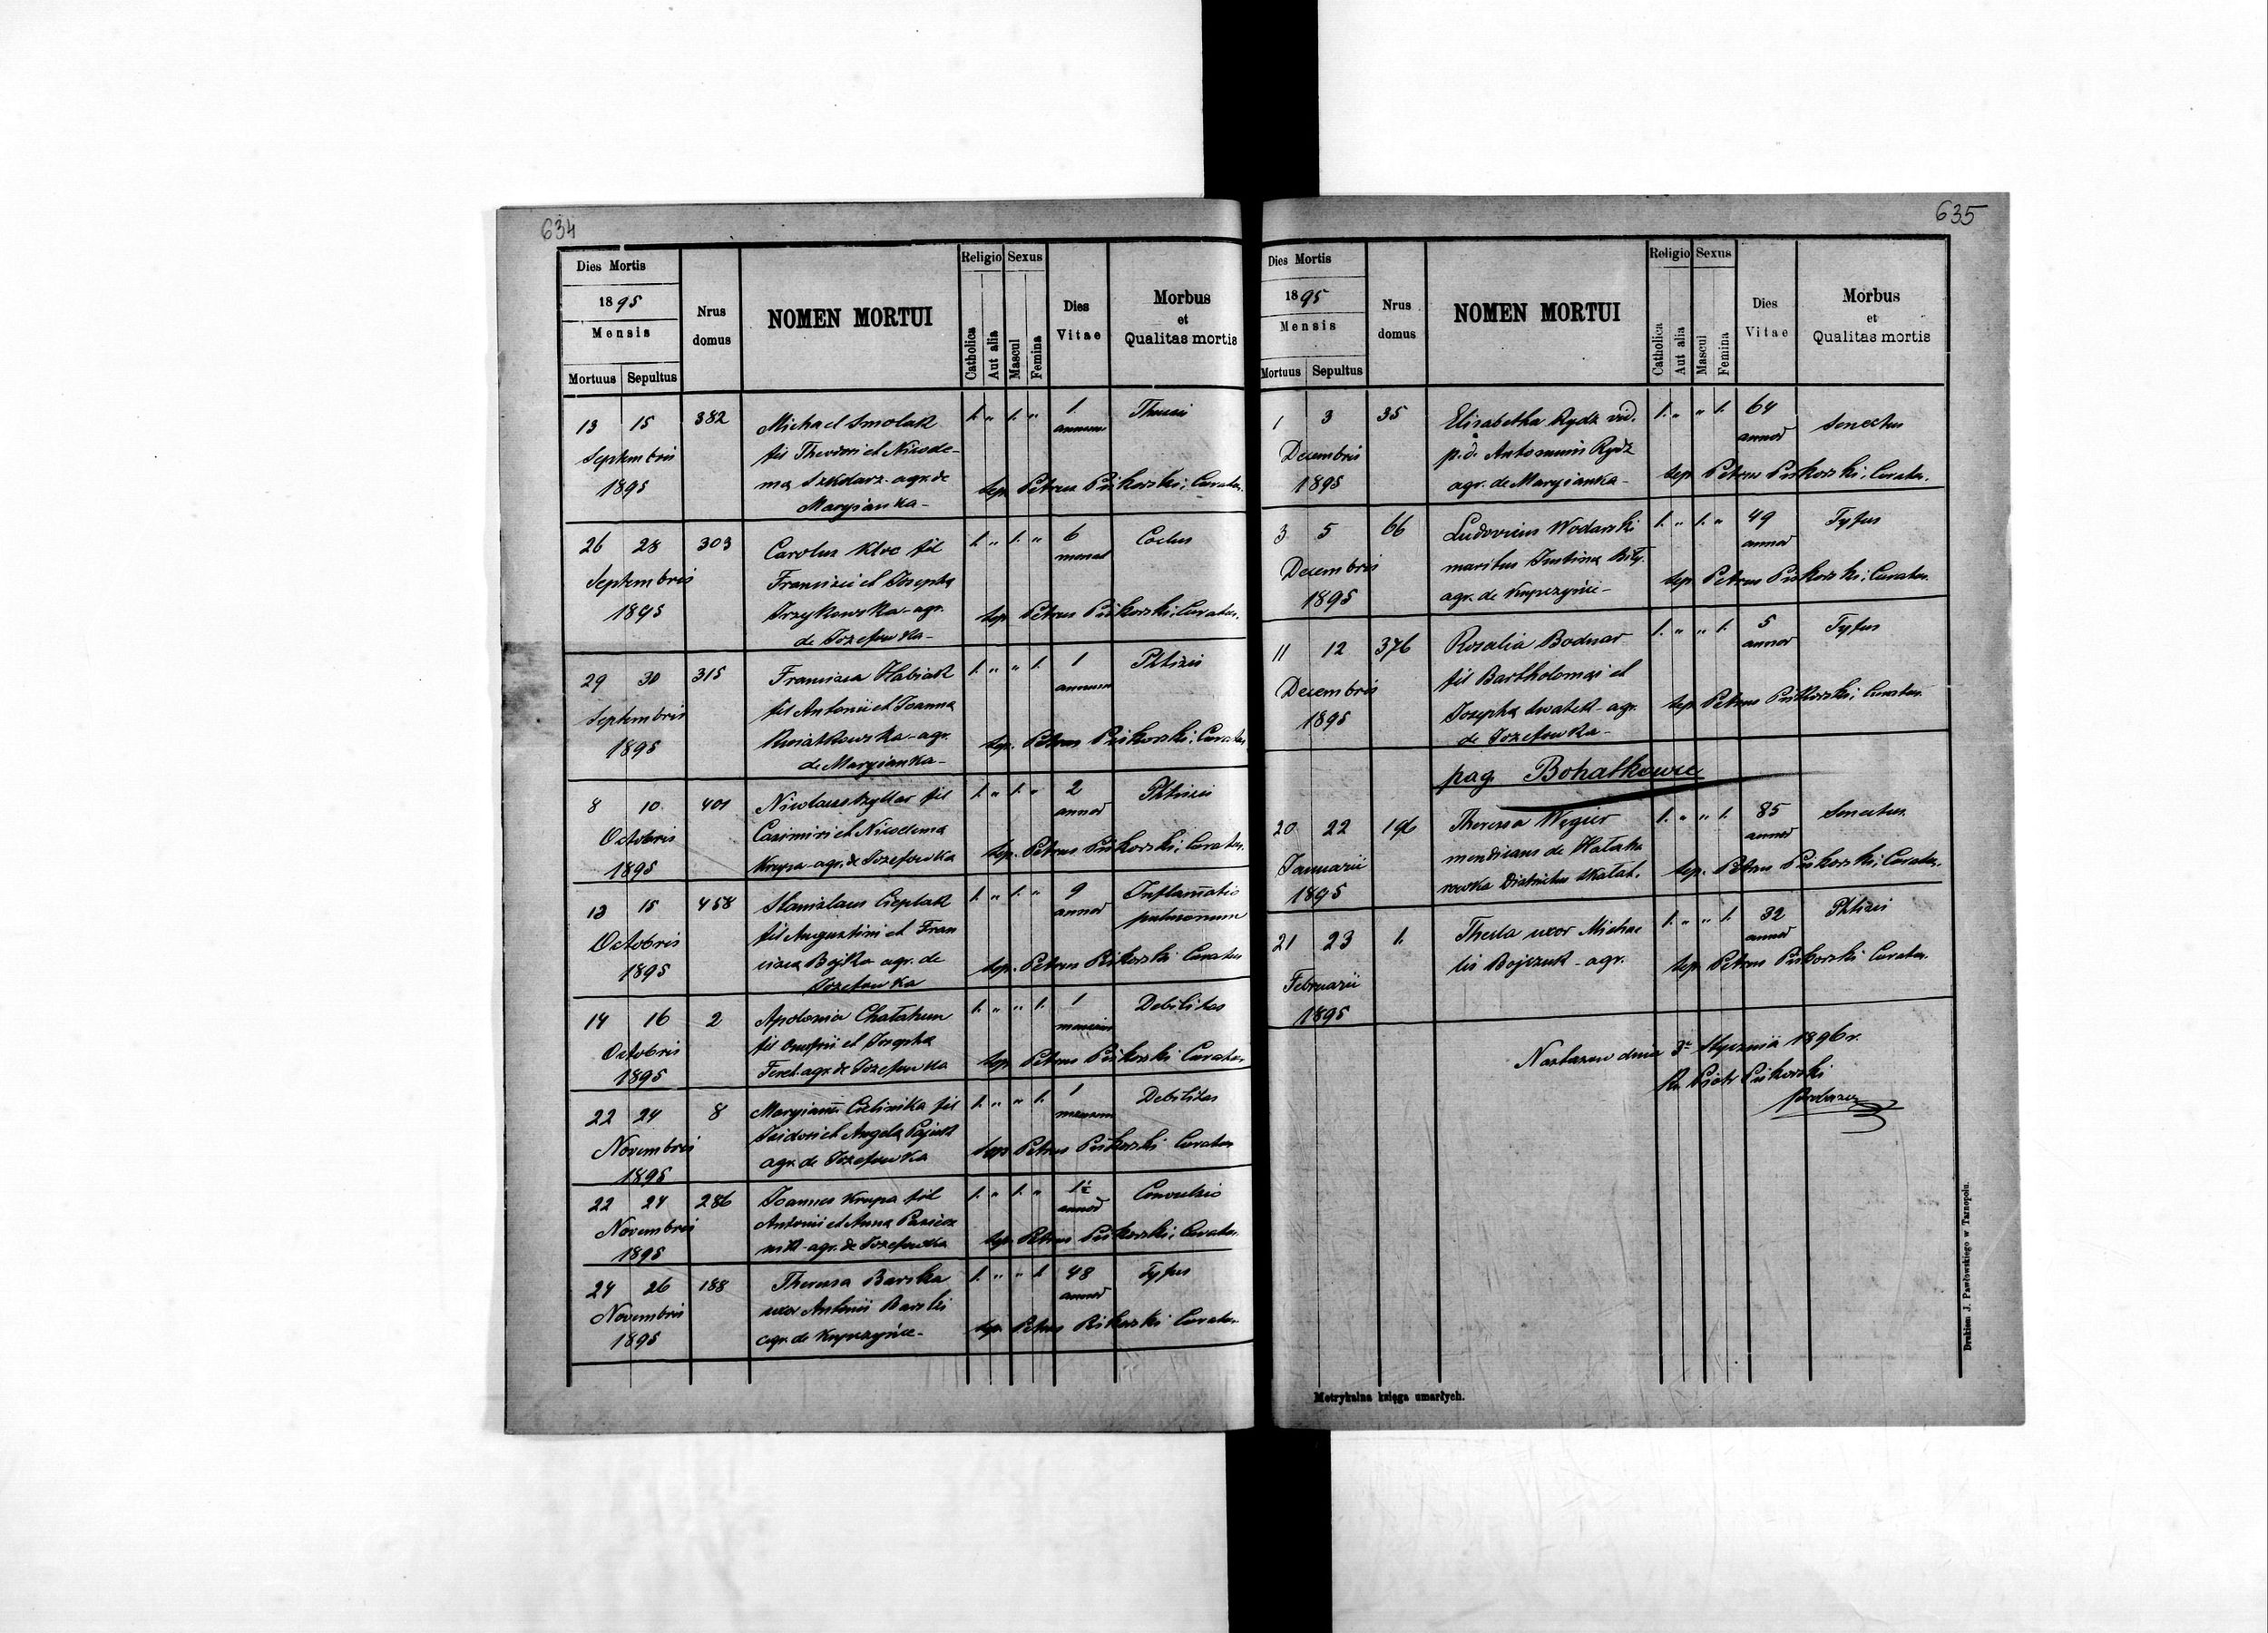 634
Dies Mortis
1895
Mensis
Mortuus Sepultus
Nrus domus
NOMEN MORTUI
Religio Sexus
Catholica Aut alia Mascul Femina
Dies Vitae
Morbus et Qualitas mortis
13 15 382 Michael Smolak 1. " 1. " 1.
Septembris fil Theodori et Nicode- annum
1895 ma Szkolarz agr. de sep. Petrus Piskorski, Curatus.
Maryianka -
26 28 303 Carolus Kloc fil 1. " 1. " 6
Septembris Francisci et Josepha
1895 agr. sep. Petrus Piskorski, Curatus.
de Jozefowka -
29 30 315 Francisca Habiak 1. " " 1. 1 Phtisis
Septembris fil Antonii et Joanna annum
1895 Kwiatkowska - agr. sep. Petrus Piskorski, Curatus
de Maryianka -
8 10 401 Nicolaus fil 1. " 1. " 2 Phtisis
Octobris Casimiri et Nicodema annos
1895 Krupa - agr. de Jozefowka sep. Petrus Piskorski, Curatus.
13 15 458 Stanislaus Cieplak 1. " 1. " 9 Inflamatio
Octobris fil Augustini et Fran annos pulmonum
1895 cisca Bojko agr. de sep. Petrus Piskorski Curatus
Jozefowka
14 16 2 Apolonia 1. " " 1. 1 Debilitas
Octobris fil Onufrii et Josepha
1895 agr. de Jozefowka sep. Petrus Piskorski Curatus
22 24 8 fil 1. " " 1. 1 Debilitas
Novembris Isidori et Angela
1895 agr. de Jozefowka sep. Petrus Piskorski Curatus
22 24 286 Joannes Krupa fil 1. " 1. " Convulsio
Novembris Antonii et Anna annos
1895 agr. de Jozefowka sep. Petrus Piskorski, Curatus.
24 26 188 Theresa Barska 1. " " 1 48 Tyfus
Novembris uxor Antonii Barski annos
1895 agr. de Kupczynce - sep. Petrus Piskorski Curatus.
635
Dies Mortis
1895
Mensis
Mortuus Sepultus
Nrus domus
NOMEN MORTUI
Religio Sexus
Catholica Aut alia Mascul Femina
Dies Vitae
Morbus et Qualitas mortis
1 3 35 Elisabetha Rydz vid. 1. " " 1. 64 Senectus
Decembris p. d. Rydz annos
1895 agr. de Maryianka - sep. Petrus Piskorski, Curatus.
3 5 66 Ludovicus Wodarski 1. " 1. " 49 Tyfus
Decembris maritus Justina annos
1895 agr. de Kupczynce - sep. Petrus Piskorski, Curatus.
11 12 376 Rosalia Bodnar 1. " " 1. 5 Tyfus
Decembris fil Bartholomæi et annos
1895 Josepha agr. sep. Petrus Piskorski, Curatus.
de Jozefowka -
pag. Bohatkowce
20 22 196 Theresa Węgier 1. " " 1. 85 Senectus.
Januarii mendicans de annos
1895 Districtus Skałat. sep. Petrus Piskorski, Curatus.
21 23 1. Thecla uxor Michae 1. " " 1. 32 Phtisis
Februarii lis Bojczuk - agr. annos
1895 sep. Petrus Piskorski Curatus.
dnia Stycznia 1896 r.
Ks. Piotr Piskorski
proboszcz
Metrykalna księga umarłych.
Drukiem J. Pawłowskiego w Tarnopolu.